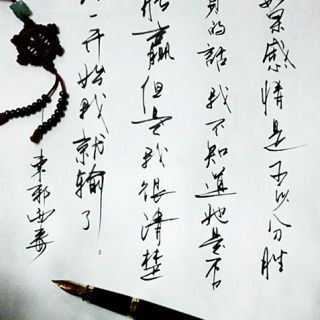 如果感情是可以分胜
負的話 我不知道她是否
能赢 但是我很清楚
一开始我就输了。
東邪西毒